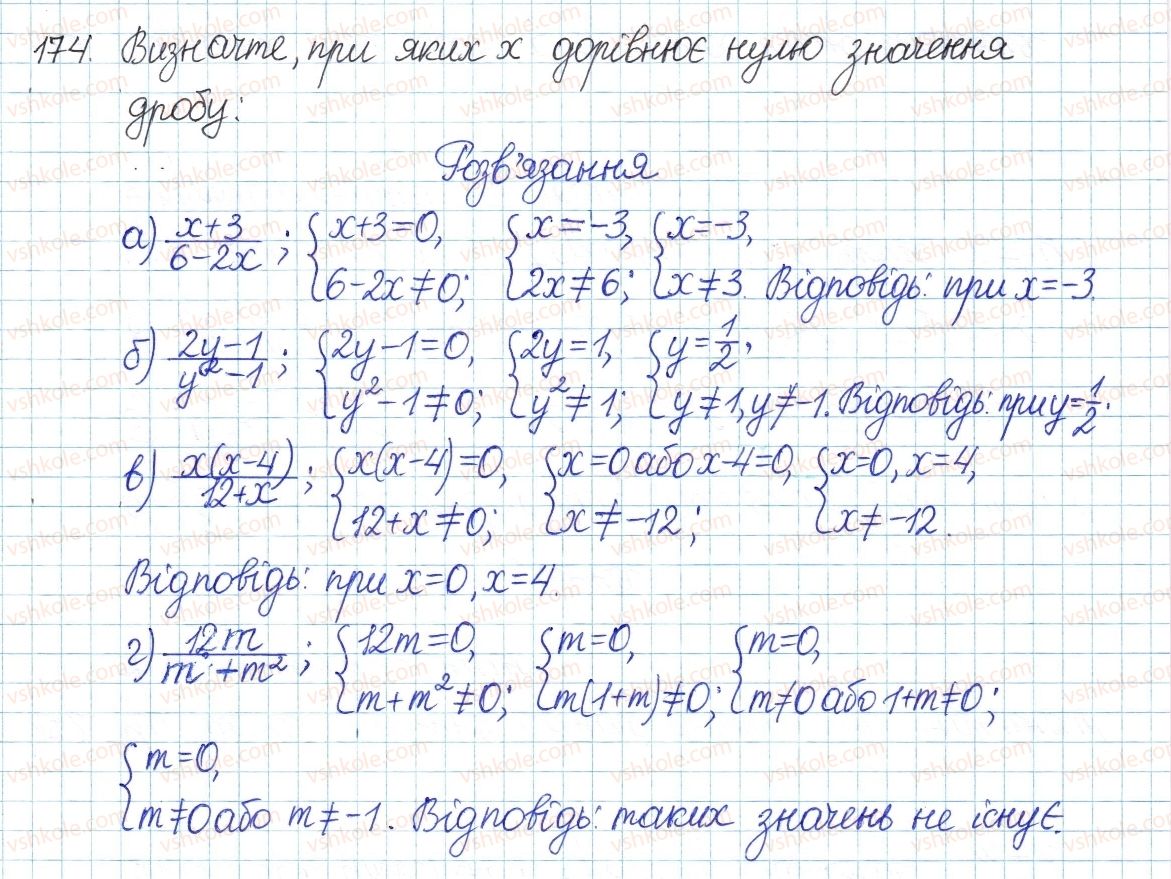 174. Визначте, при яких x дорівнює нулю значення
дробу:
Розв'язання
а) x+3/6-2x ; {x+3=0, 6-2x≠0; {x=-3, 2x≠6; {x=-3, x≠3. Відповідь: при x=-3.
б) 2y-1/y²-1 ; {2y-1=0, y²-1≠0; {2y=1, y²≠1; {y=1/2, y≠1, y≠-1. Відповідь: при y=1/2.
в) x(x-4)/12+x ; {x(x-4)=0, 12+x≠0; {x=0 або x-4=0, x≠-12; {x=0, x=4, x≠-12.
Відповідь: при x=0, x=4.
г) 12m/m+m² ; {12m=0, m+m²≠0; {m=0, m(1+m)≠0; {m=0, m≠0 або 1+m≠0;
{m=0,
m≠0 або m≠-1. Відповідь: таких значень не існує.
vshkole.com